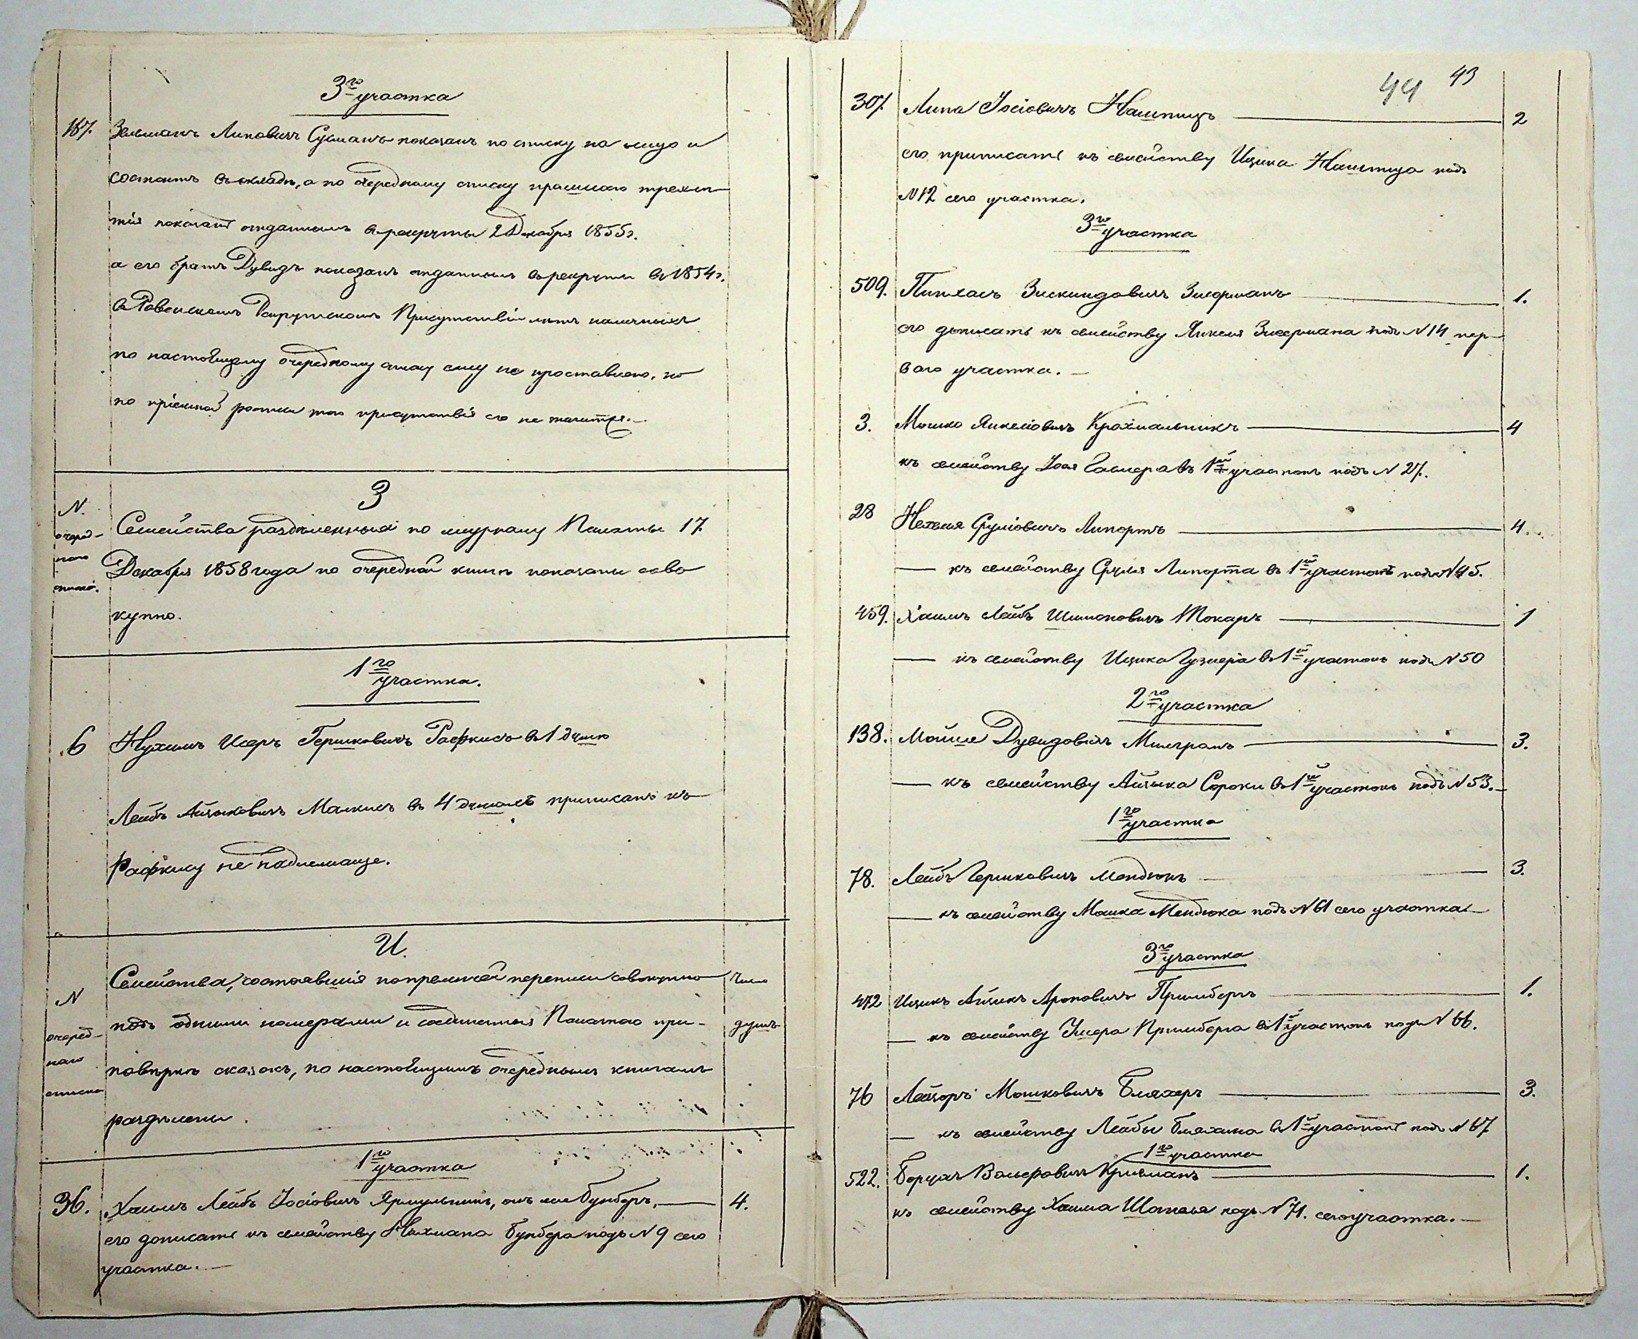 3го участка
167. Зельманъ Липовичъ Сусманъ показанъ по списку на лицо и
состоитъ въ окладѣ, а по очередному списку прошлаго трехлѣ-
тія показанъ отданнымъ въ рекруты 2 Декабря 1855г.
а его братъ Дувидъ показанъ отданнымъ въ рекруты въ 1854г.
въ Ровенскомъ Рекрутскомъ Присутствіи лѣтъ наличныхъ
по настоящему очередному списку ему не проставлено, но
по пріемной росписи того присутствія онъ не значится.
N очеред-
наго
списка.
З
Семейства раздѣленныя по журналу Палаты 17
Декабря 1858 года по очередной книгѣ показаны сово
купно.
1го участка.
6 Нухимъ Исеръ Гершковичъ Рафкисъ въ 1 душѣ
Лейбъ Айзиковичъ Малкисъ въ 4 душахъ приписанъ къ
Рафкису не надлежаще.
N
очеред-
наго
списка
И.
Семейства, состоявшія по прежней переписи совокупно
подъ одними номерами и соединенныя Палатою при
повѣркѣ сказокъ, по настоящимъ очереднымъ книгамъ
раздѣлены.
Число
душъ
1го участка
36. Хаимъ Лейбъ Іосіовичъ Ярмульникъ, онъ же Бумберъ, 4.
его дописать къ семейству Нахмана Бумбера подъ N 9 сего
участка.
44 43
307. Липа Іосіовичъ Нашпицъ 2
его приписать къ семейству Ицика Нашпица подъ
N12 сего участка.
3го участка
509. Пинхасъ Зискиндовичъ Зисерманъ 1.
его дописать къ семейству Янкеля Зисермана подъ N14 пер-
ваго участка.
3. Мошко Янкеліовичъ Крохмальникъ 4
къ семейству въ 1й участокъ подъ N 27.
28 Нахманъ Сруліовичъ Липортъ 4
къ семейству Сруля Липорта въ 1й участокъ подъ N45.
459. Хаимъ Лейбъ Шимоновичъ Токаръ 1
къ семейству Ицика Гузнера въ 1й участокъ подъ N50
2го участка
138. Мойше Дувидовичъ Милгромъ 3.
къ семейству Айзика Сороки въ 1й участокъ подъ N53.
1го участка
78. Лейбъ Гершковичъ Мендюкъ 3.
къ семейству Мошка Мендюка подъ N61 сего участка
3го участка
472 Ицикъ Айзикъ Ароновичъ Примбергъ 1.
къ семейству Примберга въ 1й участокъ подъ N 66.
76 Лейзоръ Мошковичъ Бляхеръ 3.
къ семейству Лейбы Бляхера въ 1й участокъ подъ N 67
1го участка
522. Борухъ Вольфовичъ Крижманъ 1.
къ семейству Хаима подъ N71. сего участка.